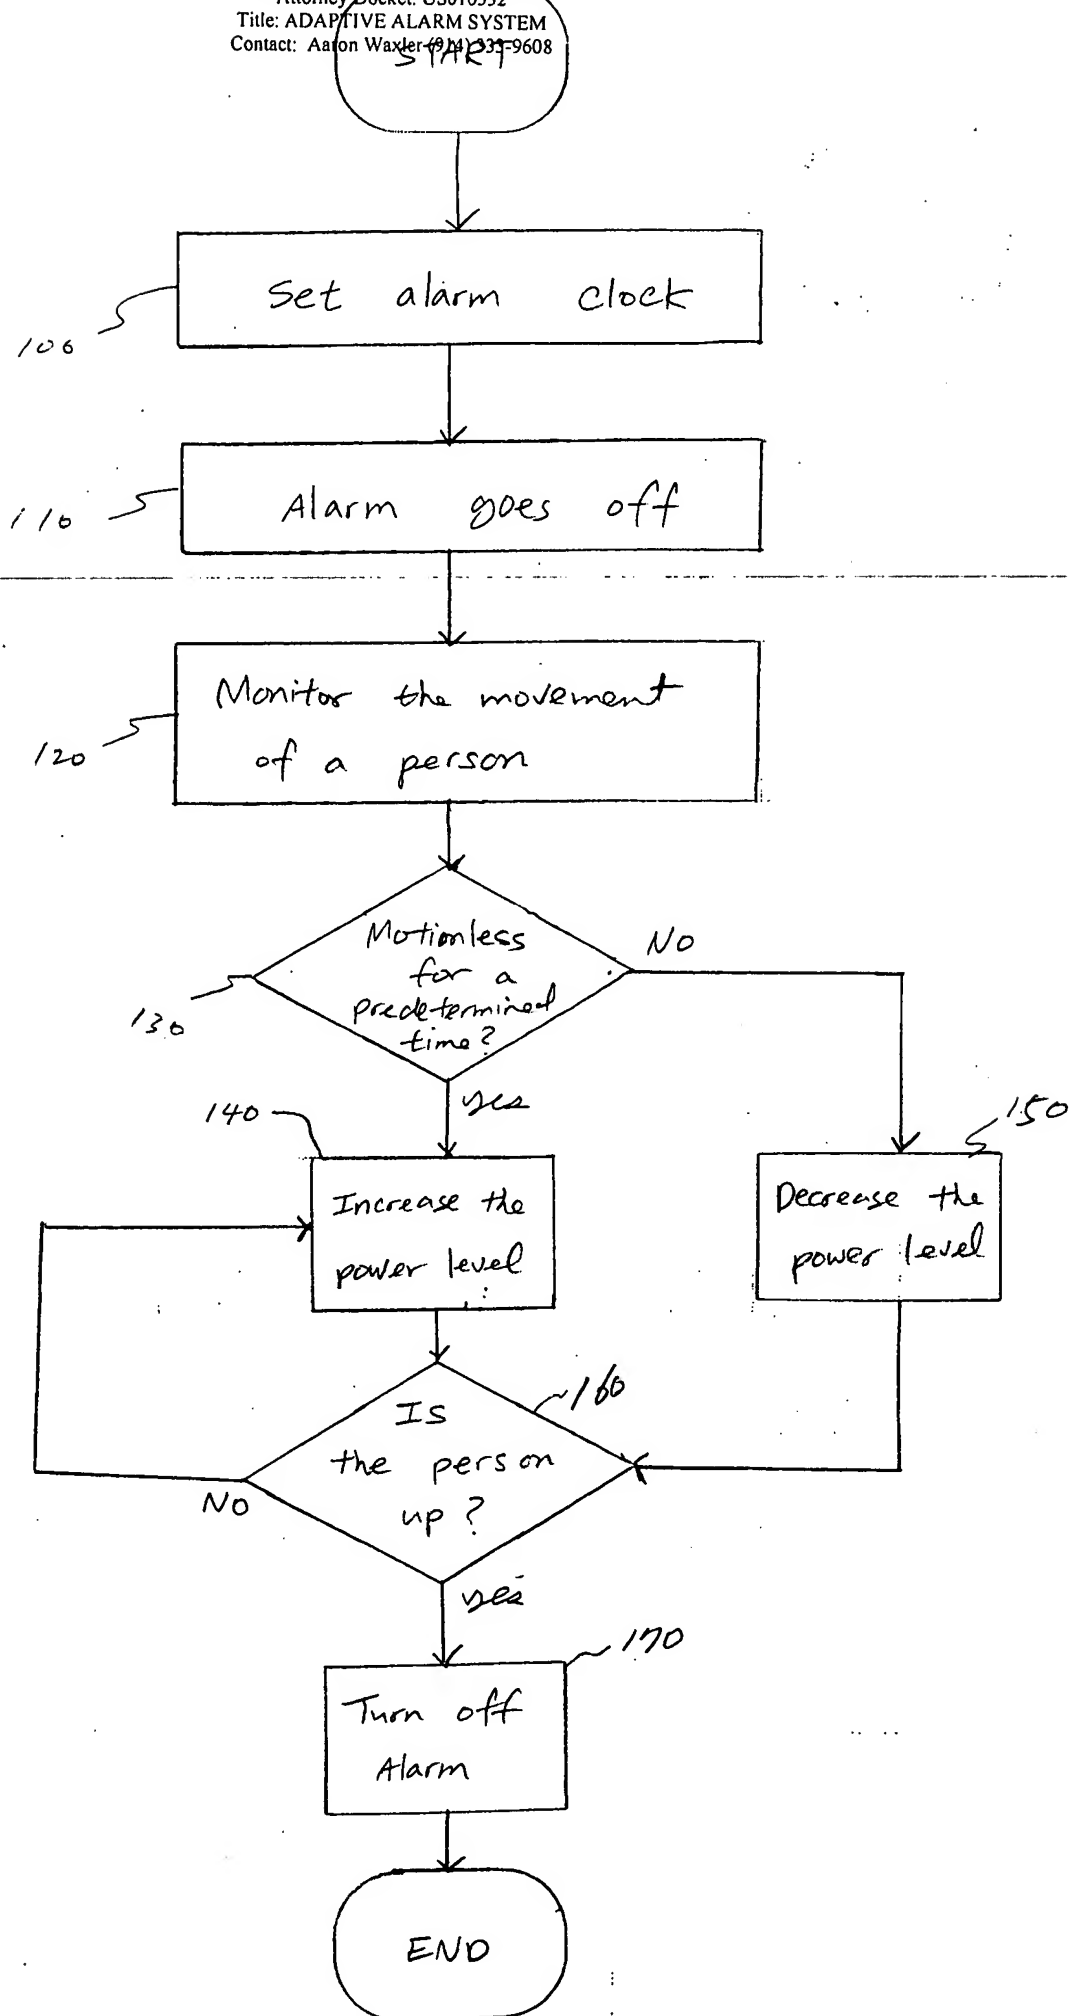 Title: ADAPTIVE ALARM SYSTEM
Contact: Aaron Waxler (914) 333-9608
START
Set alarm clock
100
Alarm goes off
110
Monitor the movement
of a person
120
Motionless
for a
predetermined
time?
NO
130
yes
140
150
Increase the
power level
Decrease the
power level
160
Is
the person
up?
NO
yes
170
Turn off
Alarm
END